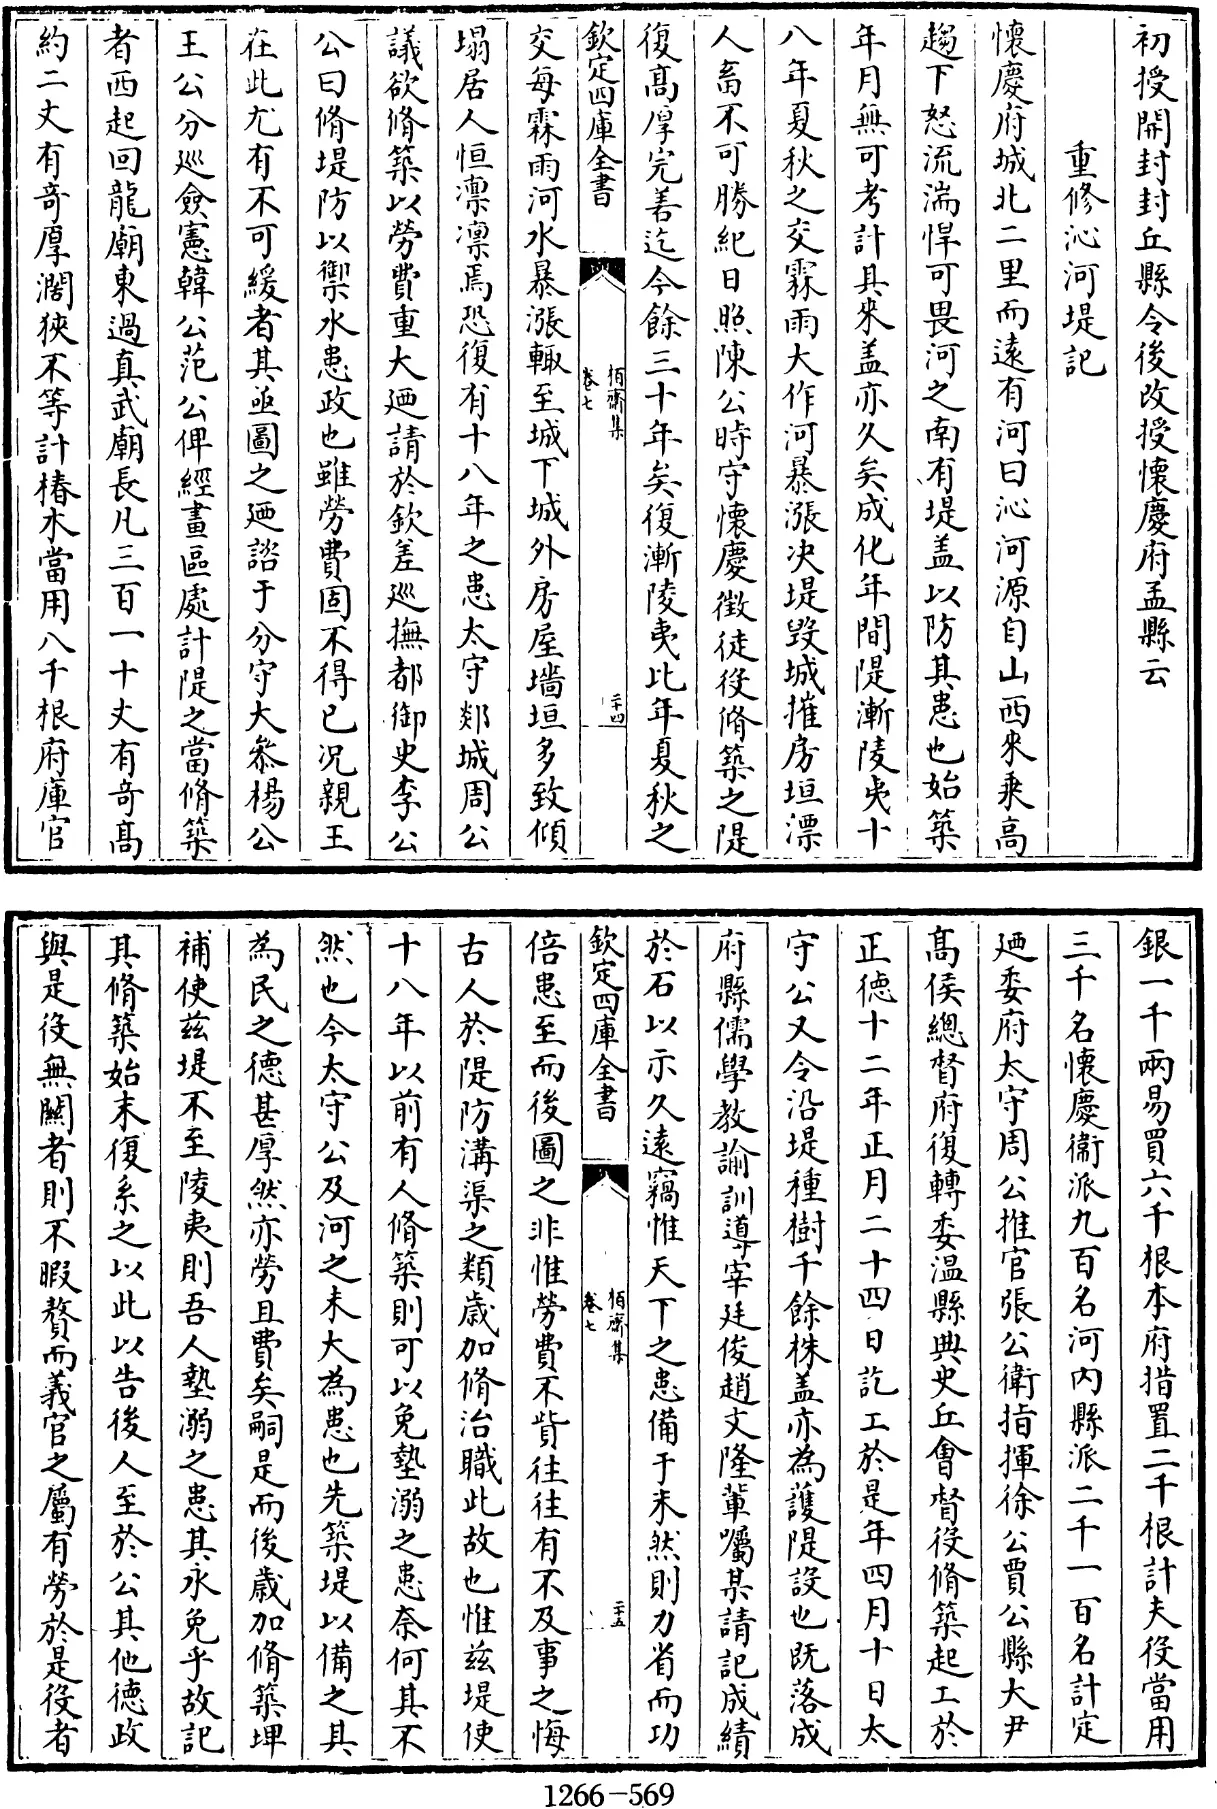 初授開封封丘縣令後改授懷慶府孟縣云
重修沁河堤記
懷慶府城北二里而遠有河曰沁河源自山西來乗高
趨下怒流湍悍可畏河之南有堤盖以防其患也始築
年月無可考計其來盖亦久矣成化年間隄漸陵夷十
八年夏秋之交霖雨大作河暴漲决堤毀城摧房垣漂
人畜不可勝紀日照陳公時守懷慶徴徒役脩築之隄
復髙厚完善迄今餘三十年矣復漸陵夷比年夏秋之
欽定四庫全書
栢齋集
卷七
二十四
交每霖雨河水暴漲輙至城下城外房屋墻垣多致傾
塌居人恒凛凛焉恐復有十八年之患太守郯城周公
議欲脩築以勞費重大廼請於欽差廵撫都御史李公
公曰脩堤防以禦水患政也雖勞費固不得已况親王
在此尤有不可緩者其亟圖之廼諮于分守大叅楊公
王公分廵僉憲韓公范公俾經畫區處計隄之當脩築
者西起回龍廟東過真武廟長凡三百一十丈有竒髙
約二丈有竒厚濶狹不等計樁木當用八千根府庫官
銀一千兩易買六千根本府措置二千根計夫役當用
三千名懷慶衞派九百名河内縣派二千一百名計定
廼委府太守周公推官張公衛指揮徐公賈公縣大尹
髙侯總督府復轉委温縣典史丘會督役脩築起工於
正德十二年正月二十四日訖工於是年四月十日太
守公又令沿堤種樹千餘株盖亦為護隄設也既落成
府縣儒學教諭訓導宰廷俊趙文隆軰囑某請記成績
於石以示久逺竊惟天下之患備于未然則力省而功
欽定四庫全書
栢齋集
卷七
二十五
倍患至而後圖之非惟勞費不貲往往有不及事之悔
古人於隄防溝渠之類歳加脩治職此故也惟兹堤使
十八年以前有人脩築則可以免墊溺之患奈何其不
然也今太守公及河之未大為患也先築堤以備之其
為民之德甚厚然亦勞且費矣嗣是而後歳加脩築埤
補使兹堤不至陵夷則吾人墊溺之患其永免乎故記
其脩築始末復系之以此以告後人至於公其他德政
與是役無闗者則不暇贅而義官之屬有勞於是役者
1266-569